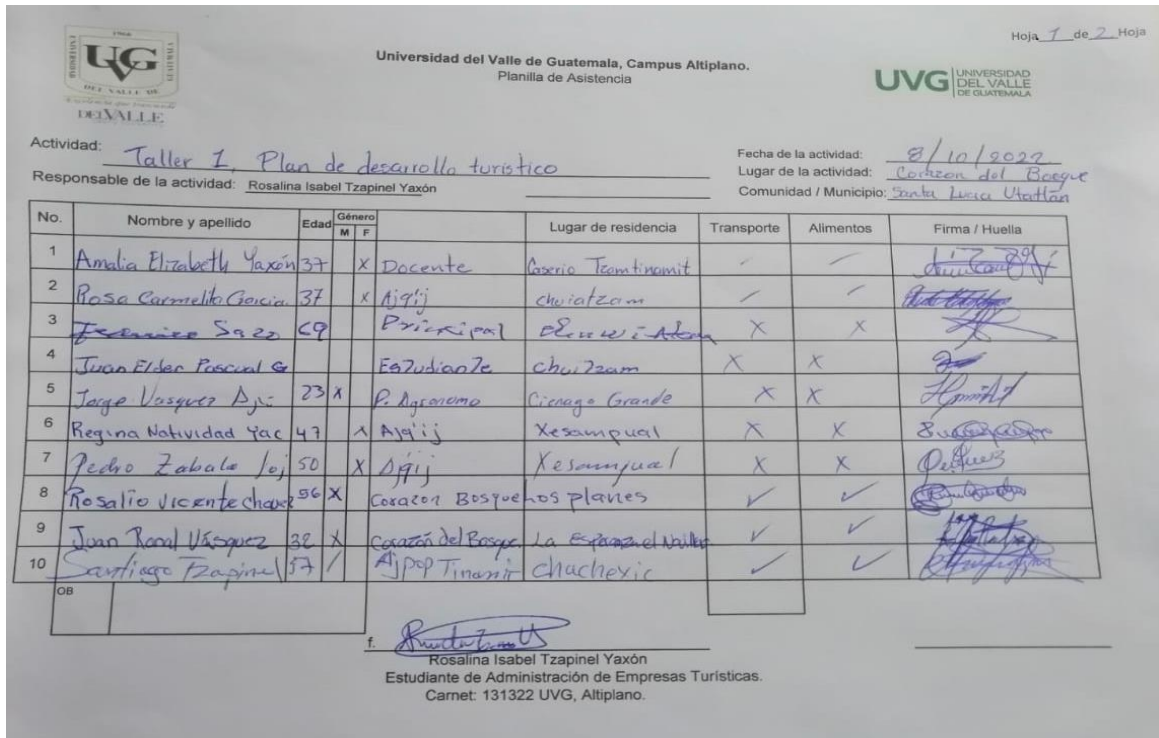 Hoja 1 de 2 Hoja
1966
UVG
DEL VALLE DE
DELVALLE
Universidad del Valle de Guatemala, Campus Altiplano.
Planilla de Asistencia
UVG UNIVERSIDAD DEL VALLE DE GUATEMALA
Actividad: Taller 1, Plan de desarrollo turistico
Fecha de la actividad: 8/10/2022
Responsable de la actividad: Rosalina Isabel Tzapinel Yaxón
Lugar de la actividad: Corazon del Bosque
Comunidad / Municipio: Santa Lucia Utatlán
No. Nombre y apellido Edad Género M F Lugar de residencia Transporte Alimentos Firma / Huella
1 Amalia Elizabeth Yaxón 37 X Docente Caserio Tzamtinamit
2 Rosa Carmelita Garcia 37 x Ajq'ij chuiatzam
3 Sazo 69 Principal X X
4 Juan Elder Pascual G Estudiante chuitzam X X
5 Jorge Vasquez 23 x P. Agronomo Cienaga Grande X X
6 Regina Natividad Yac 47 x Ajq'ij Xesampual X X
7 Pedro Zabala 50 X Xesampual X X
8 Rosalio Vicente chavez 56 X Corazon Bosque hos planes ✓ ✓
9 Juan Ronal Vásquez 32 X Corazón del Bosque La Esperanza ✓ ✓
10 Santiago Tzapinel 57 / Ajpop Tinamit Chuchexic ✓ ✓
OB
f.
Rosalina Isabel Tzapinel Yaxón
Estudiante de Administración de Empresas Turísticas.
Carnet: 131322 UVG, Altiplano.